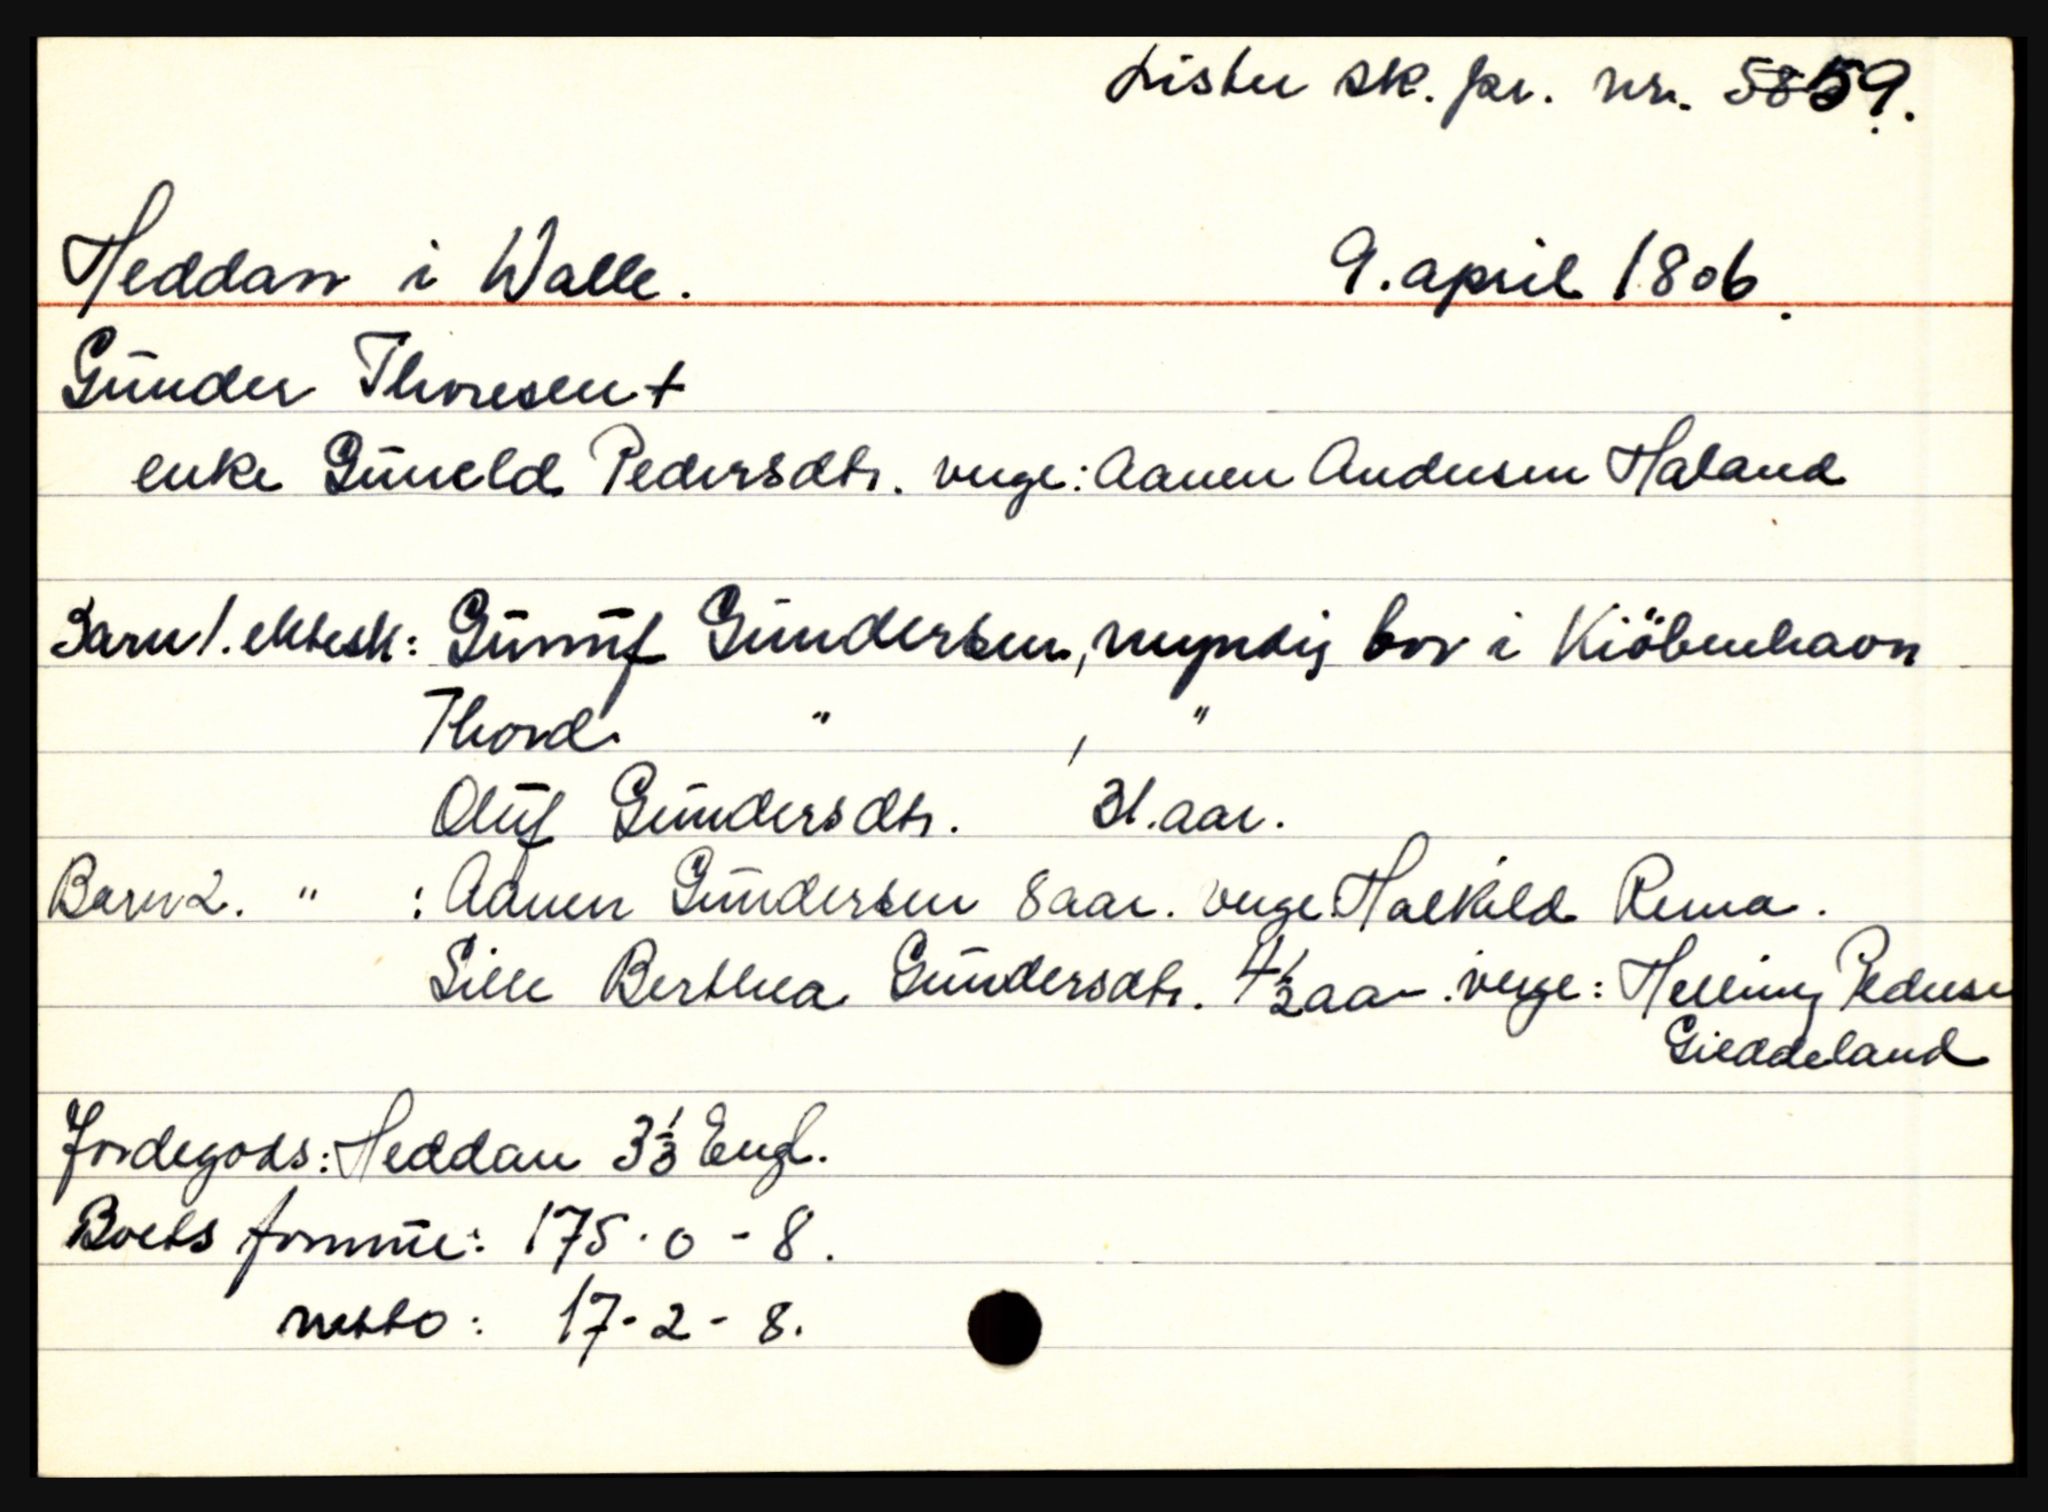 Lister sk. pr. nr. 5859.
Heddan i Walle. 9. april 1806.
Gūnder Thoresen +
enke Gūneld Pedersdtr. verge: Aanen Andersen Haaland
Barn 1. ektesk: Gūnūf Gūndersen, myndig bor i Kiöbenhavn
Thord " , "
Olūf Gūndersdtr. 31. aar.
Barn 2. " : Aanen Gūndersen 8 aar. verge: Halkild Rema.
Sille Berthea Gūndersdtr. 4½ aar. verge: Helling Pedersen
Gieddeland
Jordegods: Heddan 3⅓ Engl.
Boets formūe: 175 - 0 - 8.
netto: 17 - 2 - 8.